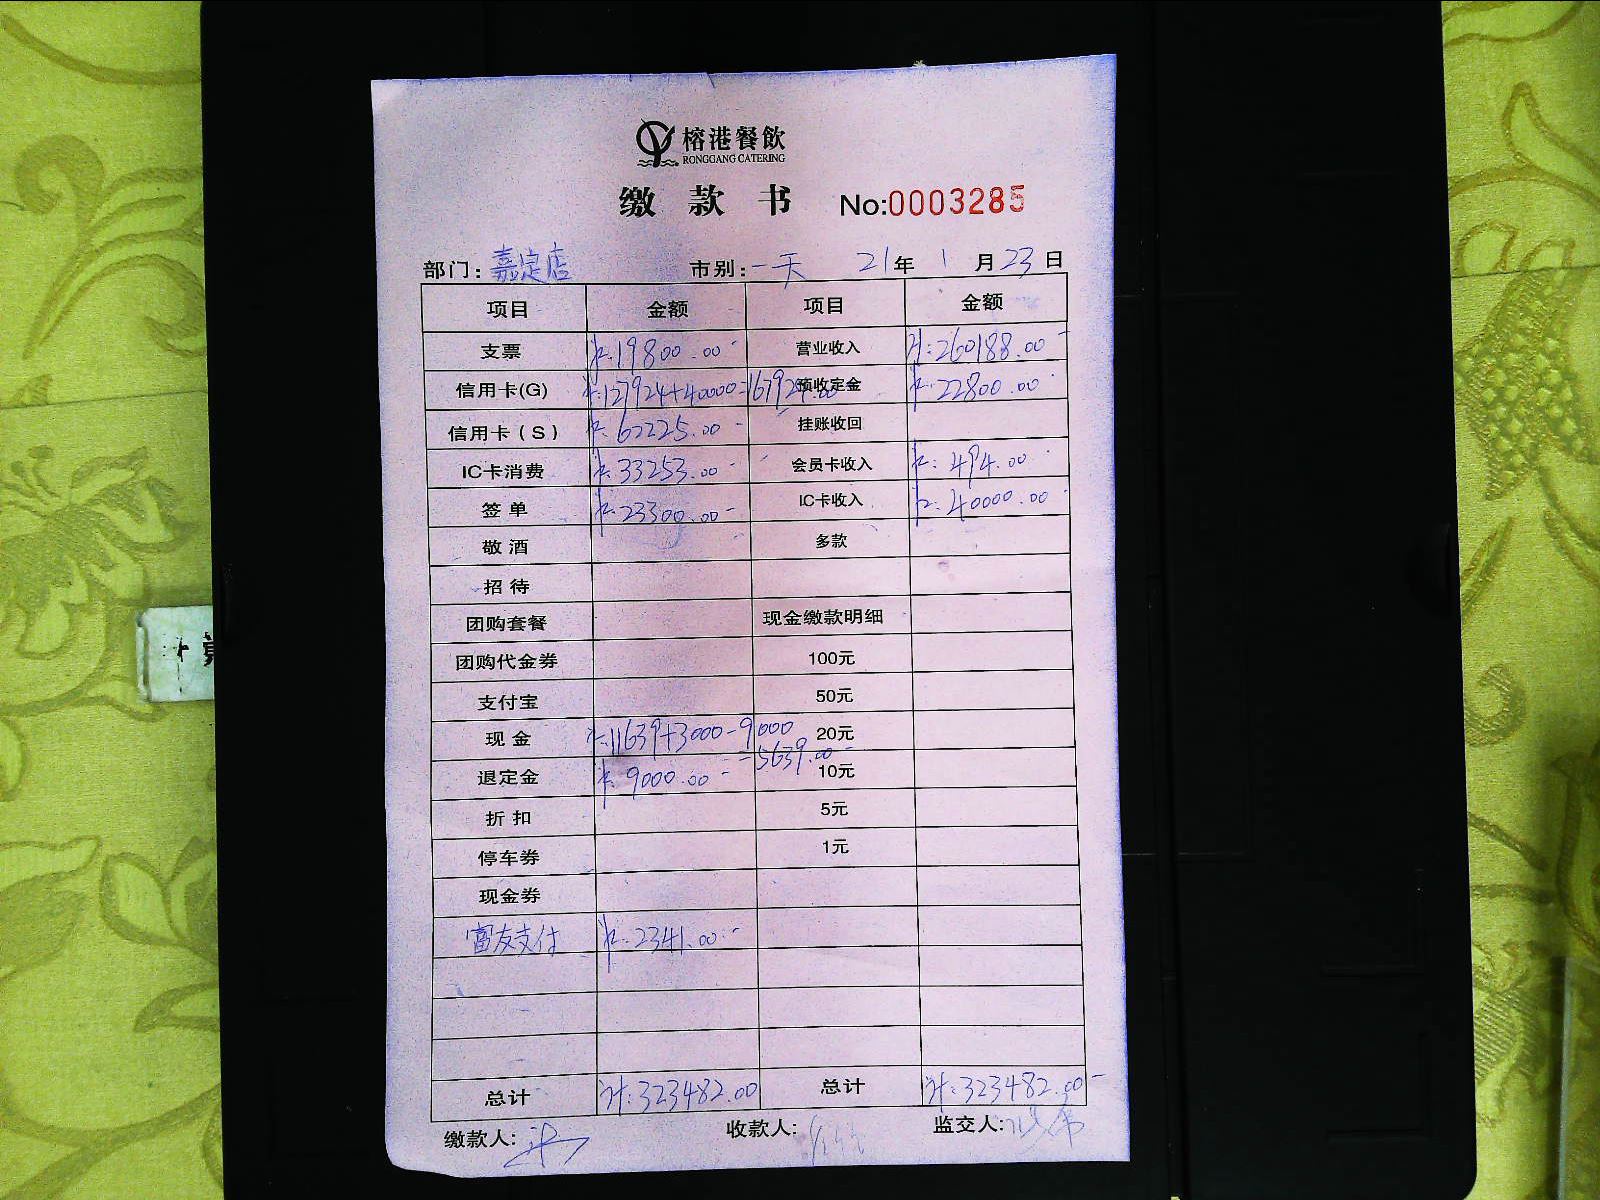 榕港餐飲
RONGGANG CATERING
缴 款 书 No:0003285
部门：嘉定店 市别：一天 21年 1月23日
项目 金额 项目 金额
支票 ¥:19800.00 营业收入 ¥:260188.00
信用卡(G) ¥:127924+40000=167924.00 预收定金 ¥:22800.00
信用卡（S） ¥:62225.00 挂账收回
IC卡消费 ¥:33253.00 会员卡收入 ¥:494.00
签单 ¥:23300.00 IC卡收入 ¥:40000.00
敬酒 多款
招待
团购套餐 现金缴款明细
团购代金券 100元
支付宝 50元
现金 ¥:11639+3000-9000 20元
=5639.00
退定金 ¥:9000.00 10元
折扣 5元
停车券 1元
现金券
富友支付 ¥:2341.00
总计 ¥:323482.00 总计 ¥:323482.00
缴款人: 收款人: 监交人: